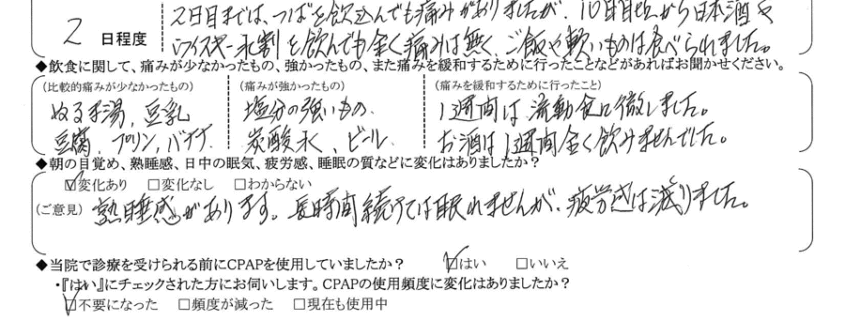 2日目までは、つばを飲込んでも痛みがありましたが、10日目位から日本酒や
2 日程度 ウィスキー水割を飲んでも全く痛みは無く、ご飯や軟いものは食べられました。
◆飲食に関して、痛みが少なかったもの、強かったもの、また痛みを緩和するために行ったことなどがあればお聞かせください。
(比較的痛みが少なかったもの) (痛みが強かったもの) (痛みを緩和するために行ったこと)
ぬるま湯、豆乳 塩分の強いもの、 1週間は流動食に徹しました。
豆腐、プリン、バナナ 炭酸水、ビール お酒は1週間全く飲みませんでした。
◆朝の目覚め、熟睡感、日中の眠気、疲労感、睡眠の質などに変化はありましたか?
☑変化あり □変化なし □わからない
(ご意見) 熟睡感があります。長時間続けては眠れませんが、疲労感は減りました。
◆当院で診療を受けられる前にCPAPを使用していましたか? ☑はい □いいえ
・『はい』にチェックされた方にお伺いします。CPAPの使用頻度に変化はありましたか?
☑不要になった □頻度が減った □現在も使用中